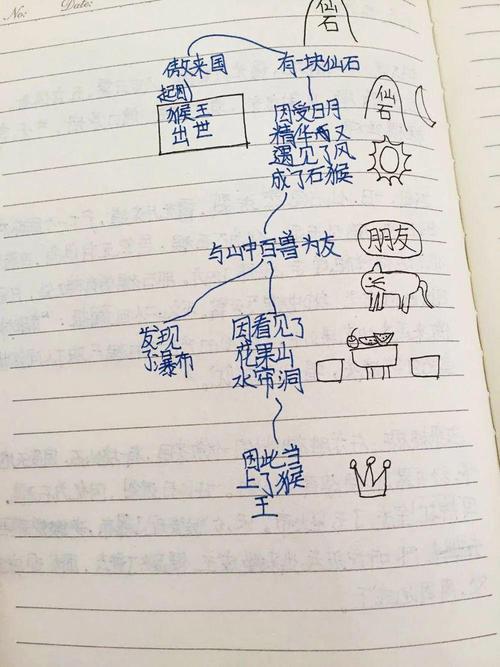 No:
Date:
仙
石
傲来国
有一块仙石
起因
猴王
出世
因受日月
精华而又
遇见了风
成了石猴
仙
石
与山中百兽为友
朋友
发现
了瀑布
因看见了
花果山
水帘洞
因此当
上了猴
王